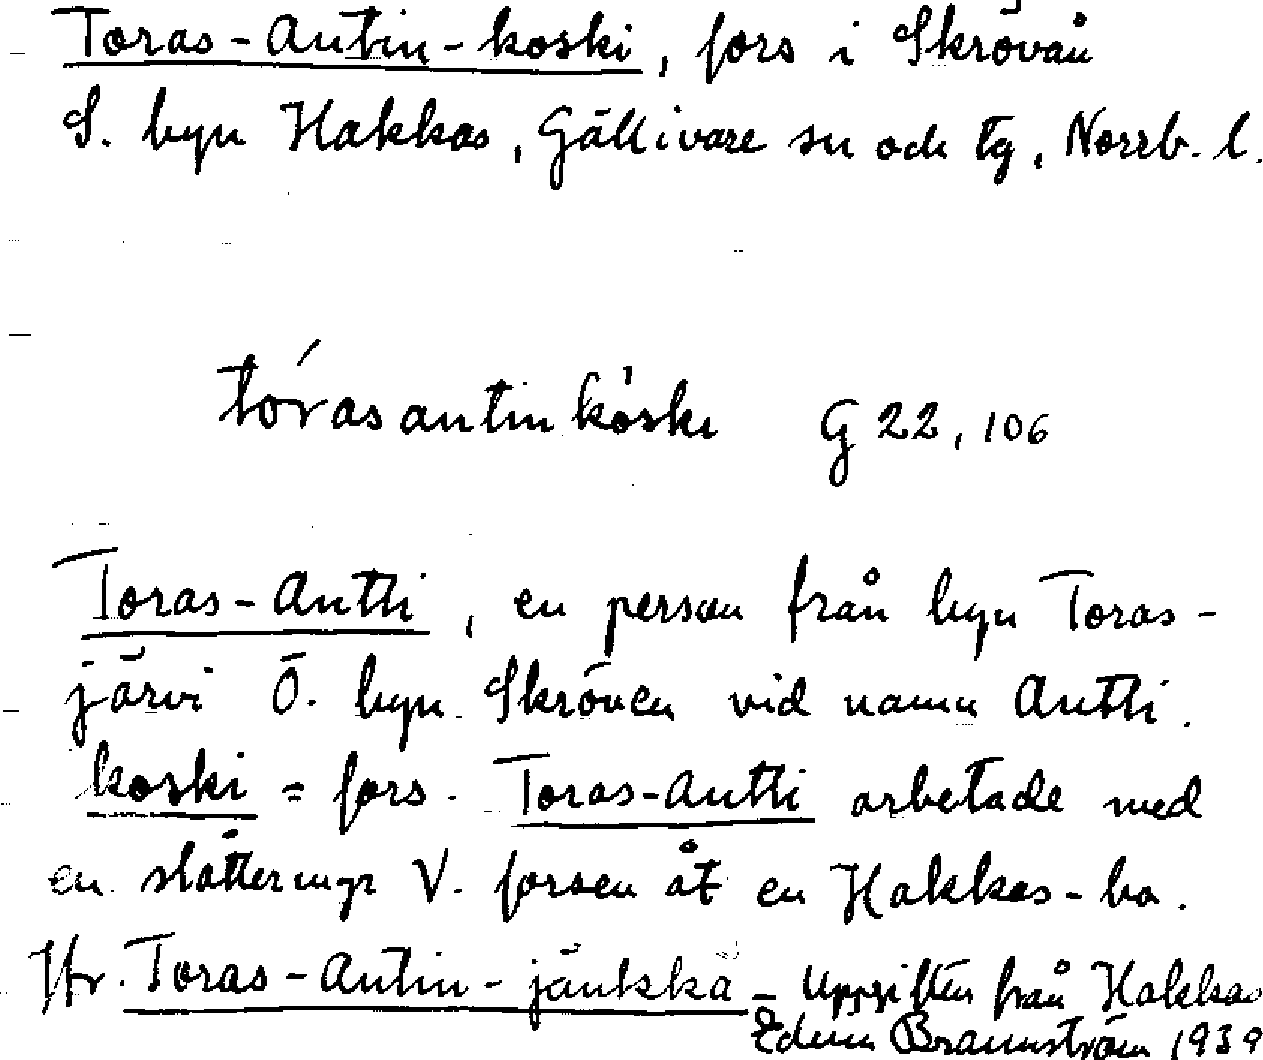 Toras-Antin-koski, fors i Skrövån
S. byn Hakkas, Gällivare sn och tg, Norrb. l.
tórasantinkòski G 22, 106
Toras-Antti, en person från byn Toras-
järvi Ö. byn Skröven vid namn Antti.
koski = fors. Toras-Antti arbetade med
en slåttermyr V. forsen åt en Hakkas-bo.
Jfr. Toras-Antin-jänkkä - Uppgiften från Hakkas
Edvin Brännström 1939